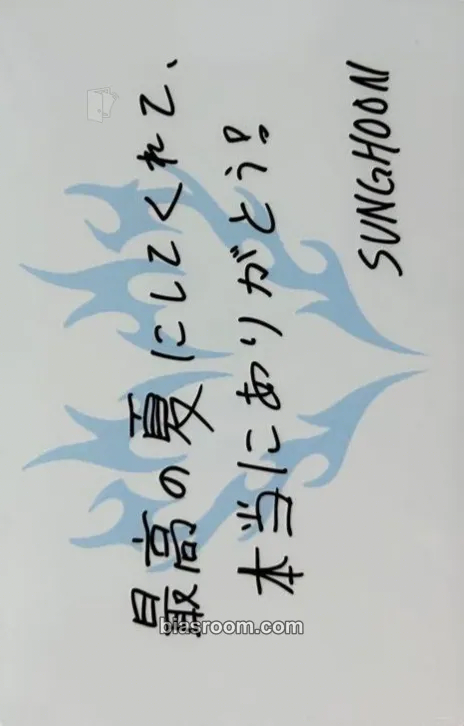 最高の夏にしてくれて、
本当にありがとう!
SUNGHOON
biasroom.com